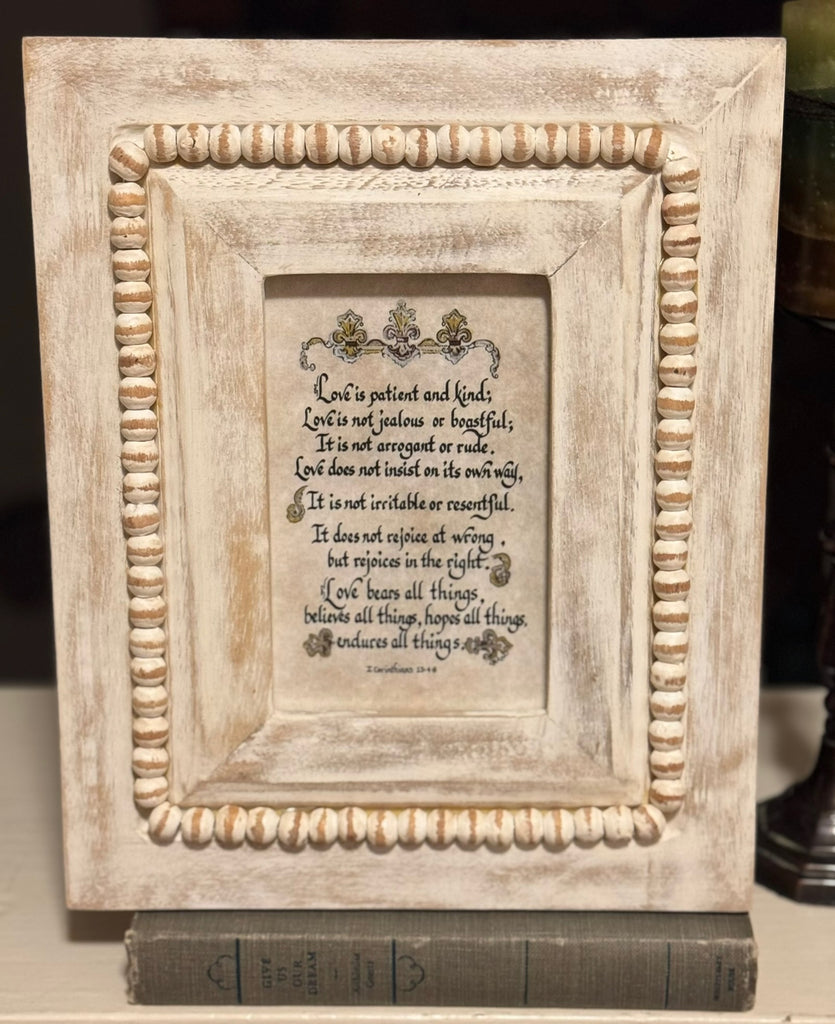 Love is patient and kind;
Love is not jealous or boastful;
It is not arrogant or rude.
Love does not insist on its own way,
It is not irritable or resentful.
It does not rejoice at wrong,
but rejoices in the right.
Love bears all things,
believes all things, hopes all things,
endures all things.
I Corinthians 13-4-8
GIVE
US
OUR
DREAM